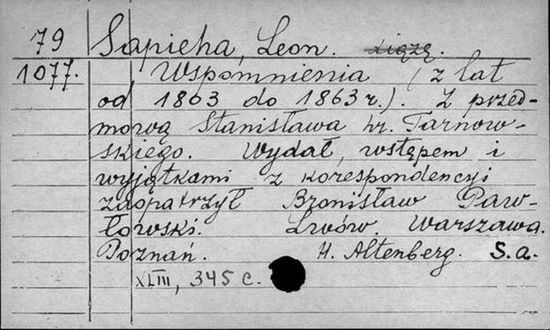 79 Sapieha, Leon. Książę.
1077. Wspomnienia (z lat
od 1803 do 1863 r.). Z przed-
mową Stanisława hr. Tarnow-
skiego. Wydał, wstępem i
wyjątkami z korespondencyi
zaopatrzył Bronisław Paw-
łowski. Lwów. Warszawa.
Poznań. H. Altenberg. S.a.
XLIII, 345 c.